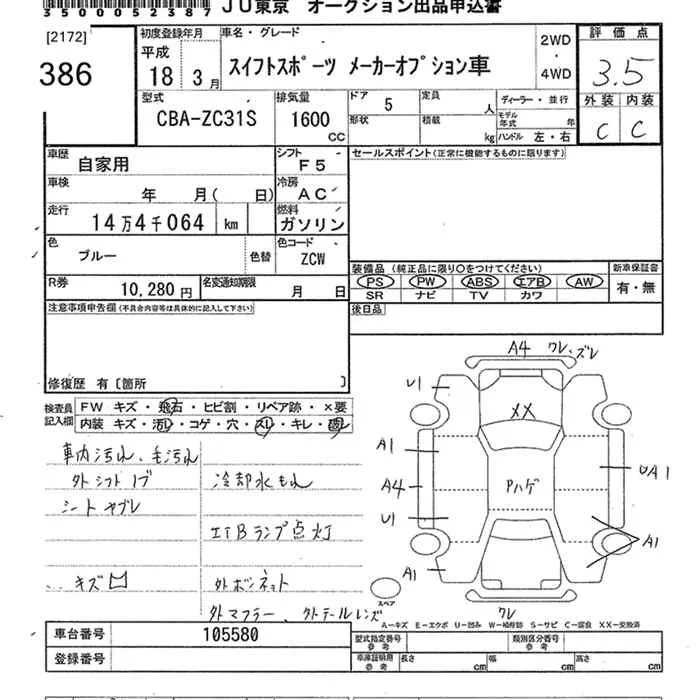 3500052387 JU東京 オークション出品申込書
[2172]
386
初度登録年月
平成
18 3月
車名・グレード
スイフトスポーツ メーカーオプション車
2WD
・
4WD
評価点
3.5
外装 内装
C C
型式
CBA-ZC31S
排気量
1600
CC
ドア 5
定員 人
形状
積載 kg
ディーラー・並行
モデル年式 年
ハンドル 左・右
車歴
自家用
シフト
F5
セールスポイント(正常に機能するものに限ります)
車検
年 月( 日)
冷房
AC
走行
14万4千064 km
燃料
ガソリン
色
ブルー
色替
色コード
ZCW
R券
10,280円
名変通知期限
月 日
装備品(純正品に限り○をつけてください)
新車保証書
PS PW ABS エアB AW
有・無
SR ナビ TV カワ
後日品
注意事項申告欄(不具合内容等は具体的に記入して下さい)
修復歴 有〔箇所 〕
検査員記入欄
FW キズ・飛石・ヒビ割・リペア跡・×要
内装 キズ・汚レ・コゲ・穴・スレ・キレ・破レ
車内汚れ、毛汚れ
外シフトノブ
冷却水もれ
シートヤブレ
エアBランプ点灯
キズ
外ボンネット
外マフラー、外テールレンズ
A4 ワレ、ズレ
U1
XX
A1
A4
Pハゲ
UA1
U1
A1
A1
スペア
ワレ
A-キズ E-エクボ U-凹み W-補修跡 S-サビ C-腐食 XX-交換済
車台番号
105580
登録番号
型式指定番号
参考
類別区分番号
参考
車庫証明用
参考
長さ cm
幅 cm
高さ cm